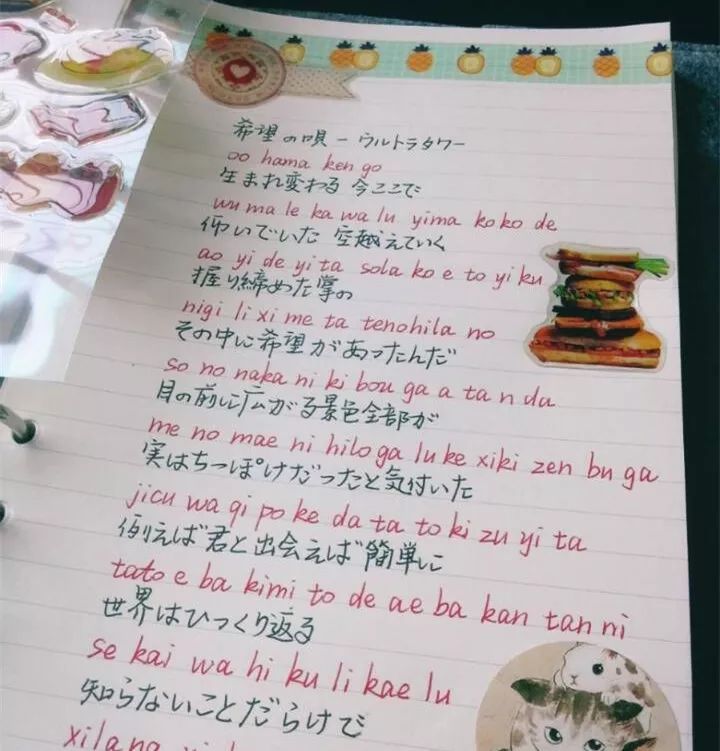 希望の唄 - ウルトラタワー
oo hama ken go
生まれ変わる 今ここで
wu ma le ka wa lu yima ko ko de
仰いでいた 空越えていく
ao yi de yi ta sola ko e to yi ku
握り締めた掌の
nigi li xi me ta tenohila no
その中に希望があったんだ
so no naka ni ki bou ga a ta n da
目の前に広がる景色全部が
me no mae ni hilo ga lu ke xiki zen bu ga
実はちっぽけだったと気付いた
jicu wa qi po ke da ta to ki zu yi ta
例えば君と出会えば簡単に
tato e ba kimi to de ae ba kan tan ni
世界はひっくり返る
se kai wa hi ku li kae lu
知らないことだらけで
xilana